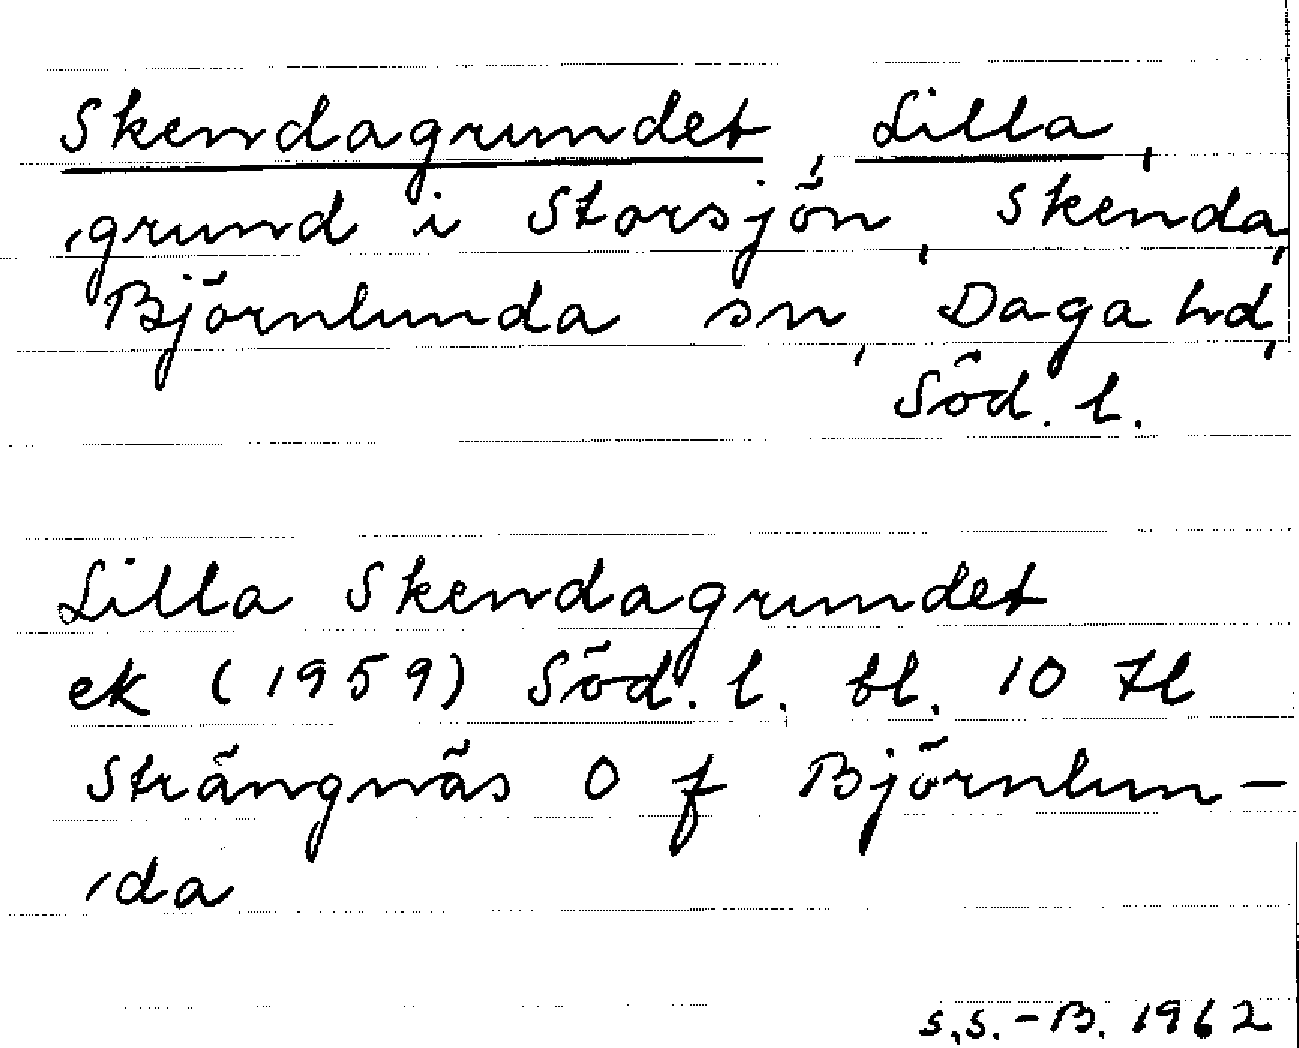 Skendagrundet, Lilla,
grund i Storsjön, Skenda,
Björnlunda sn, Daga hd,
Söd. l.
Lilla Skendagrundet
ek (1959) Söd. l. bl. 10 tl
Strängnäs O f Björnlun-
da
S.S.-B. 1962